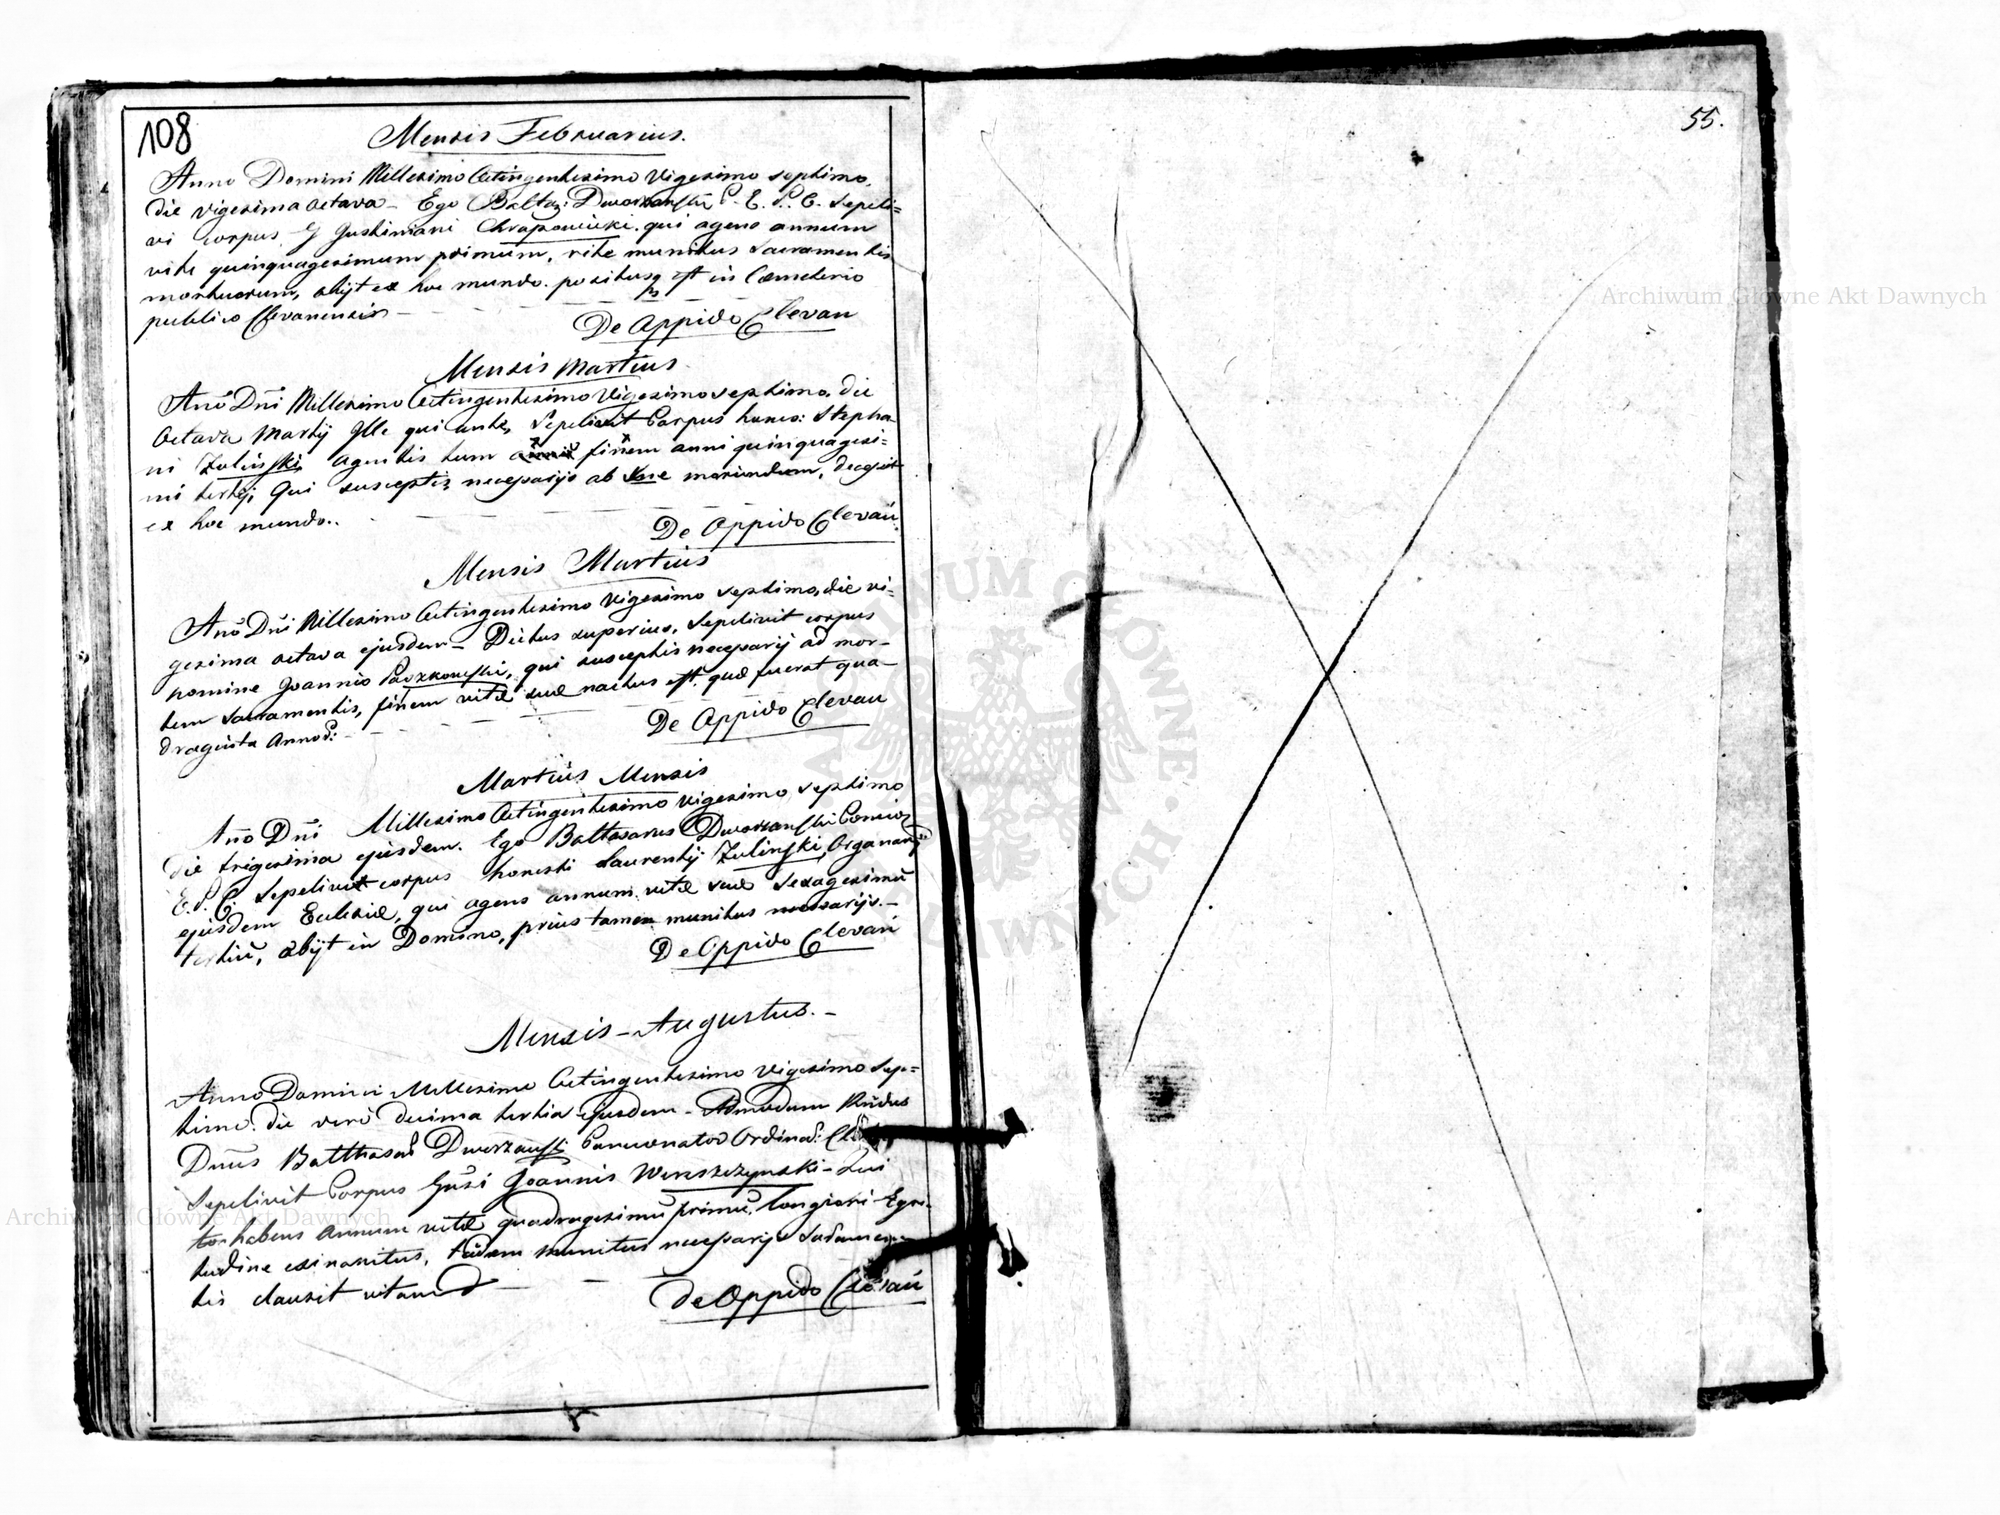 108
Mensis Februarius.
Anno Domini Millesimo Octingentesimo Vigesimo septimo,
die vigesima octava – Ego Baltaz: Dworzanski C. E. P. C. sepeli=
vi corpus G Justiniani Chrapowicki. qui agens annum
vitæ quinquagesimum primum, rite munitus Sacramentis
mortuorum, abijt ex hoc mundo. positusq est in Cæmeterio
publico Clevanensis –
De Oppido Clevan
Mensis Martius
Ano Dni Millesimo Octingentesimo Vigesimo septimo, die
Octava Martij Ille qui ante, Sepelivit Corpus hones: Stepha
ni Zulinski, agentis tum finem anni quinquagesi=
mi tertij, Qui susceptis necessarijs ab
ex hoc mundo..
De Oppido Clevan.
Mensis Martius
Ano Dni Millesimo Octingentesimo Vigesimo septimo, die vi=
gesima octava ejusdem – Dictus superius, Sepelivit corpus
nomine Joannis Paszkowski, qui susceptis necessarij ad mor–
tem Sacramentis, finem vitæ suæ nactus est, quæ fuerat qua–
draginta Annor:
De Oppido Clevan
Martius Mensis
Ano Dni Millesimo Octingentesimo vigesimo septimo
die trigesima ejusdem. Ego Baltasarus Dworzanski Concio
E. P. C. Sepelivit corpus honesti Laurentij Zulinski, Organarij
ejusdem Ecclesiæ, qui agens annum vitæ suæ Sexagesimu
tertiu, abijt in Domino, prius tamen munitus necessarijs. –
De Oppido Clevan
Mensis – Augustus. –
Anno Domini Millesimo Octingentesimo Vigesimo sep=
timo. die vero decima tertia ejusdem – Admodum Rndus
Dnus Balthasar Dworzanski Concionator Ordinar:
Sepelivit Corpus Gnsi Joannis Wereszczynski – Qui
habens Annum vitæ quadragesimu primu, longiori Egri–
tudine exinanitus, tandem munitus necessarijs Sacramen
tis clausit vitam
de Oppido Clevan
55.
Archiwum Główne Akt Dawnych
Archiwum Główne Akt Dawnych
ARCHIWUM GŁÓWNE AKT DAWNYCH